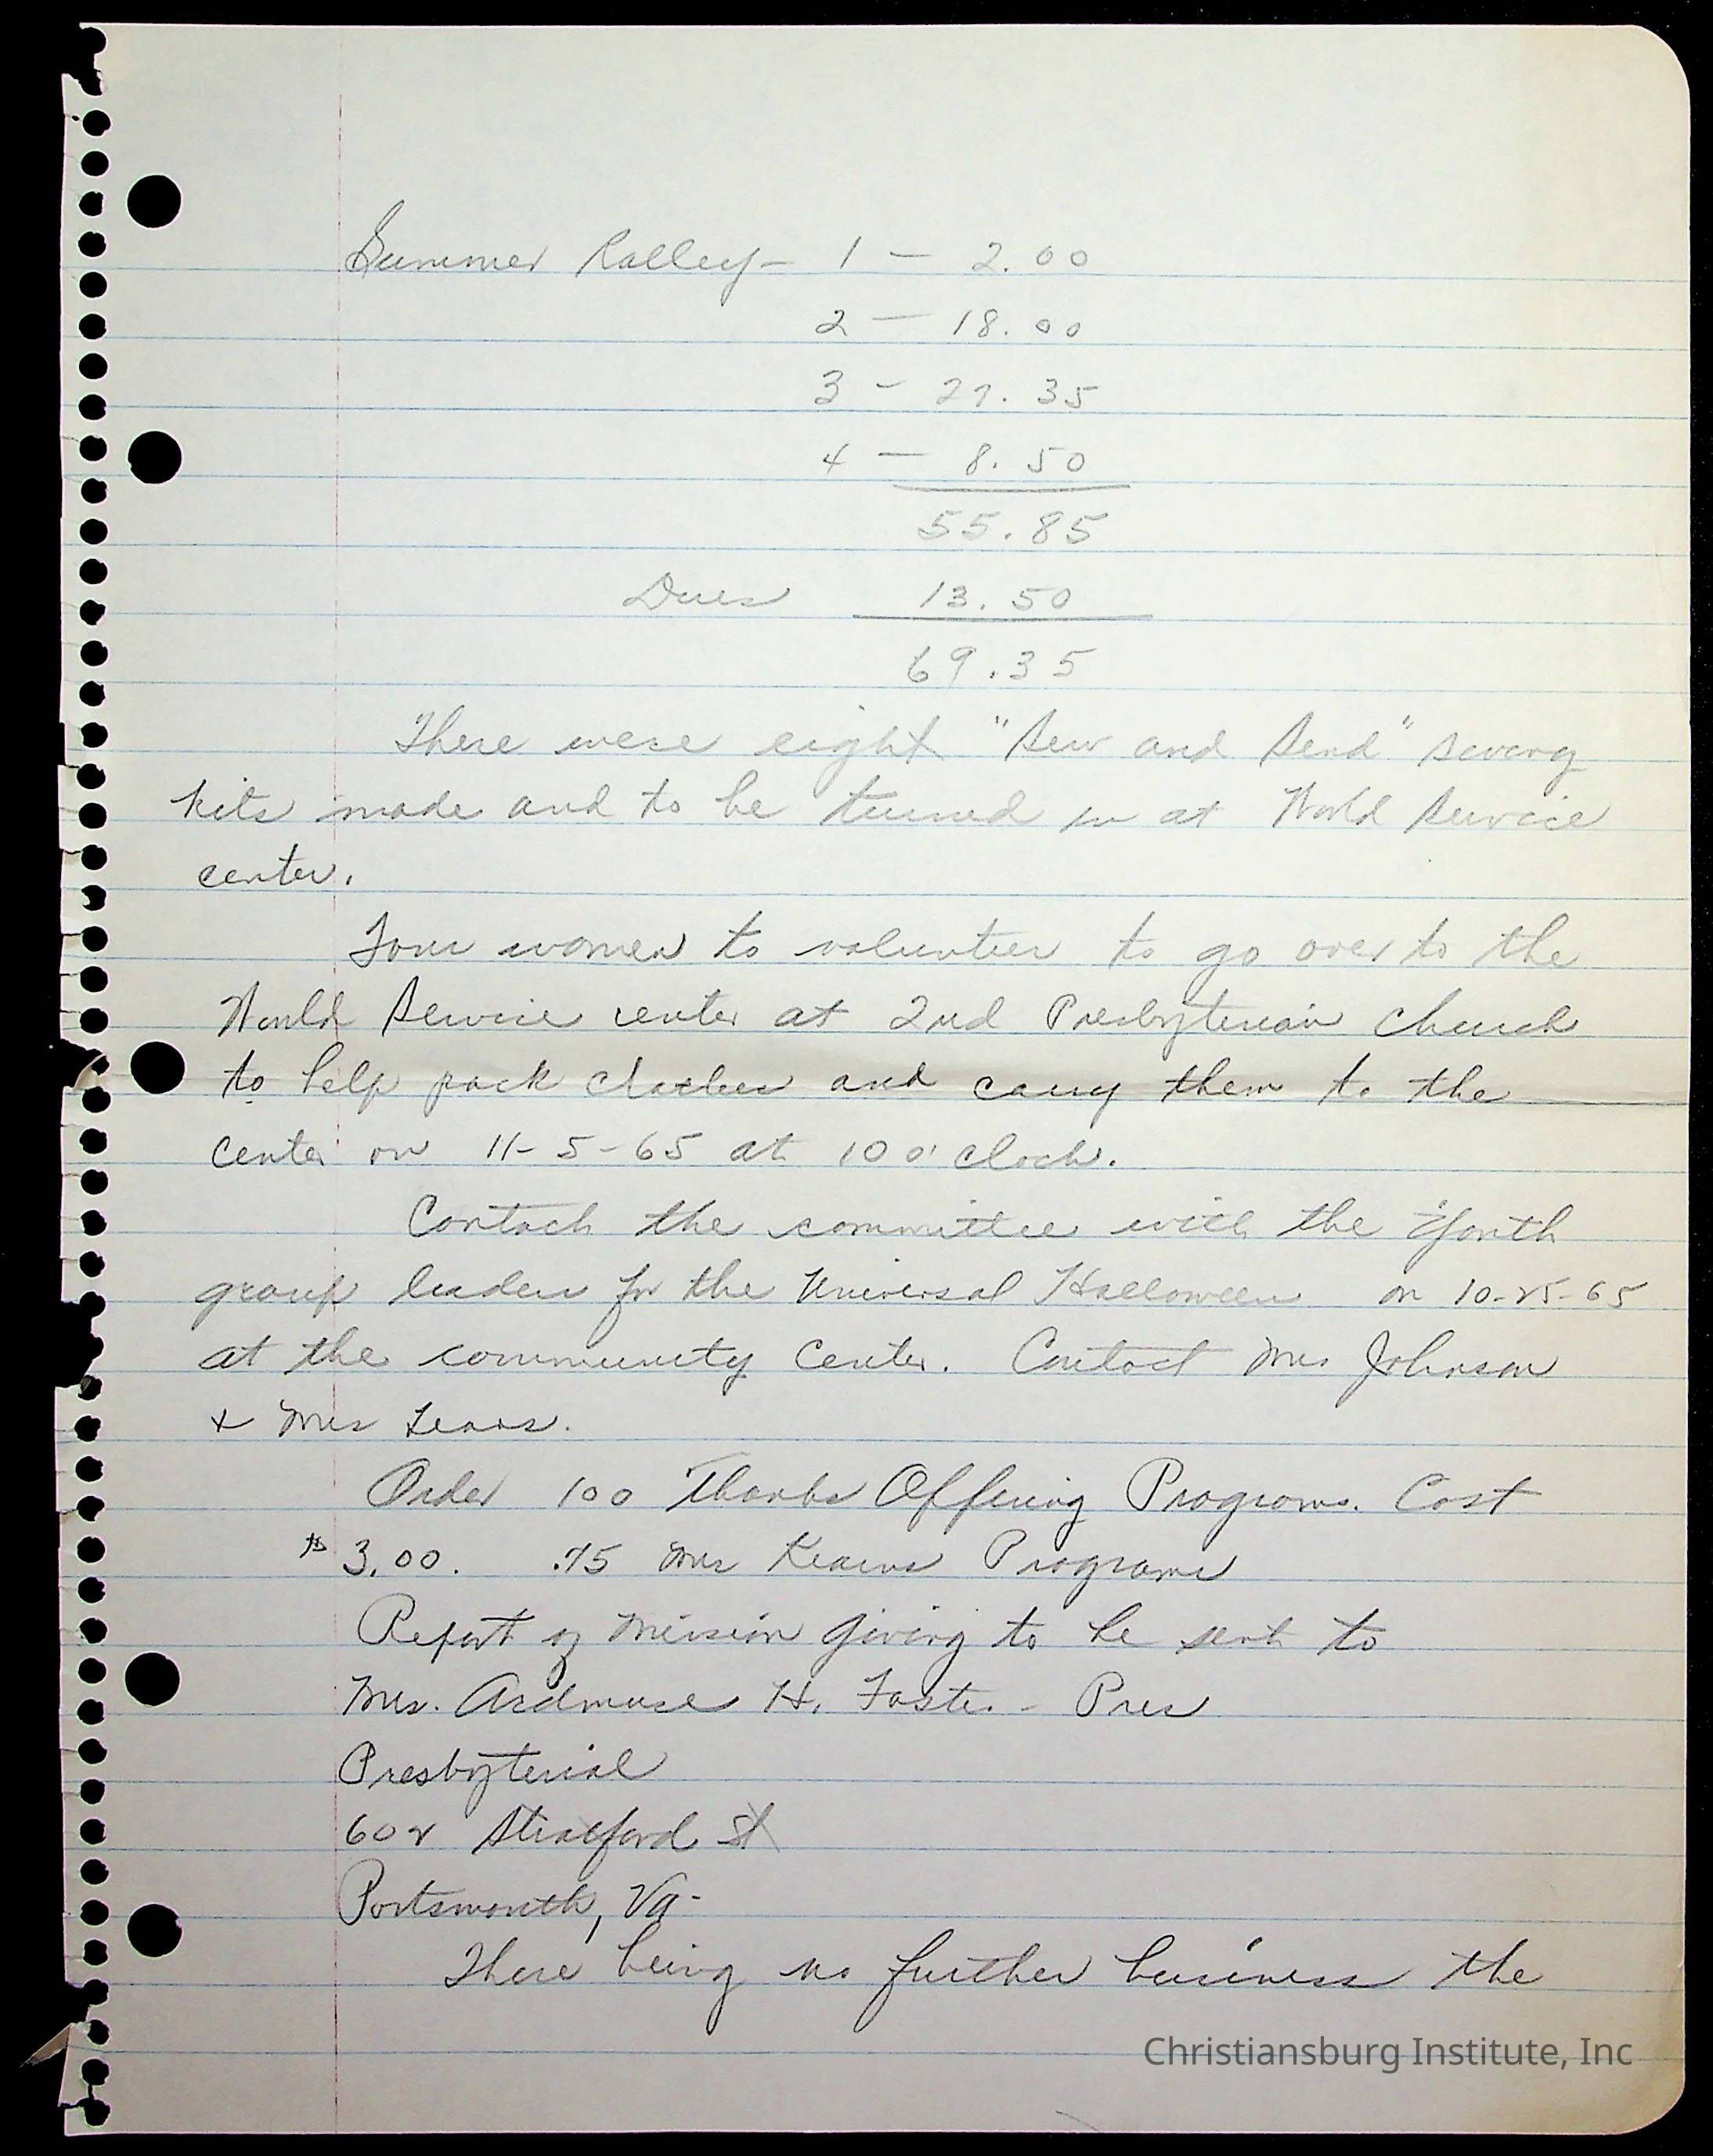 Summer Ralley - 1 - 2.00
2 - 18.00
3 - 27.35
4 - 8.50
55.85
Dues 13.50
69.35
There were eight "Sew and Send" sewing
kits made and to be turned in at World Service
center.
Four women to volunteer to go over to the
World Service center at 2nd Presbyterian Church
to help pack clothes and carry them to the
center on 11-5-65 at 10 o'clock.
Contact the committee with the Youth
group leaders for the Universal Halloween on 10-25-65
at the community Center. Contact Mrs Johnson
& Mrs
Order 100 Thanks Offering Programs. Cost
$3.00. .75 Mrs Kearns Programs
Report of Mission giving to be sent to
Mrs. Ardmuse H. Foster - Pres
Presbyterial
602 Stratford St
Portsmouth, Va-
There being no further business the
Christiansburg Institute, Inc